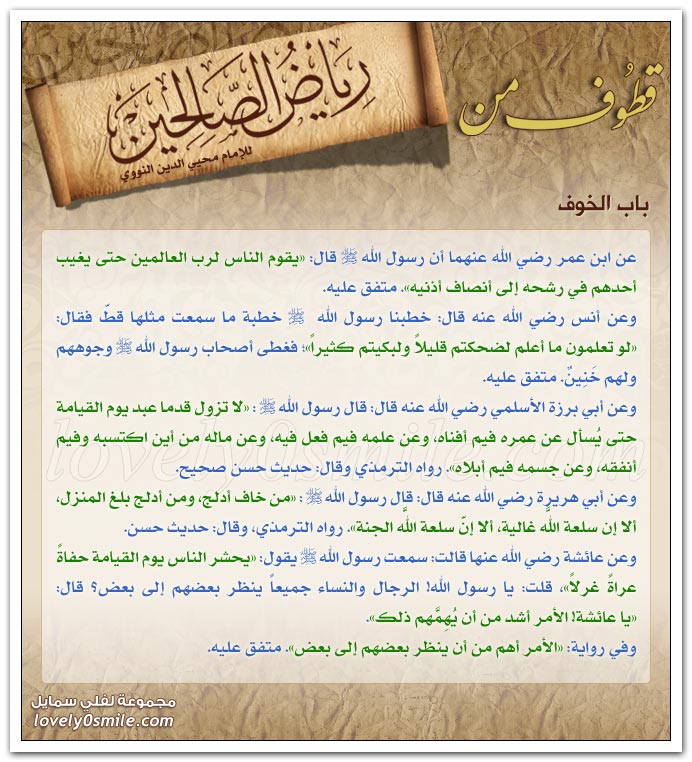 قطوف من
رياض الصالحين
للإمام محيي الدين النووي
باب الخوف
عن ابن عمر رضي الله عنهما أن رسول الله ﷺ قال: «يقوم الناس لرب العالمين حتى يغيب
أحدهم في رشحه إلى أنصاف أذنيه». متفق عليه.
وعن أنس رضي الله عنه قال: خطبنا رسول الله ﷺ خطبة ما سمعت مثلها قطّ فقال:
«لو تعلمون ما أعلم لضحكتم قليلاً ولبكيتم كثيراً»؛ فغطى أصحاب رسول الله ﷺ وجوههم
ولهم خَنِينٌ. متفق عليه.
وعن أبي برزة الأسلمي رضي الله عنه قال: قال رسول الله ﷺ : «لا تزول قدما عبد يوم القيامة
حتى يُسأل عن عمره فيم أفناه، وعن علمه فيم فعل فيه، وعن ماله من أين اكتسبه وفيم
أنفقه، وعن جسمه فيم أبلاه». رواه الترمذي وقال: حديث حسن صحيح.
وعن أبي هريرة رضي الله عنه قال: قال رسول الله ﷺ : «من خاف أدلج، ومن أدلج بلغ المنزل،
ألا إن سلعة الله غالية، ألا إنّ سلعة الله الجنة». رواه الترمذي، وقال: حديث حسن.
وعن عائشة رضي الله عنها قالت: سمعت رسول الله ﷺ يقول: «يحشر الناس يوم القيامة حفاةً
عراةً غرلاً»، قلت: يا رسول الله! الرجال والنساء جميعاً ينظر بعضهم إلى بعض؟ قال:
«يا عائشة! الأمر أشد من أن يُهِمَّهم ذلك».
وفي رواية: «الأمر أهم من أن ينظر بعضهم إلى بعض». متفق عليه.
lovely0smile.com
مجموعة لفلي سمايل
lovely0smile.com